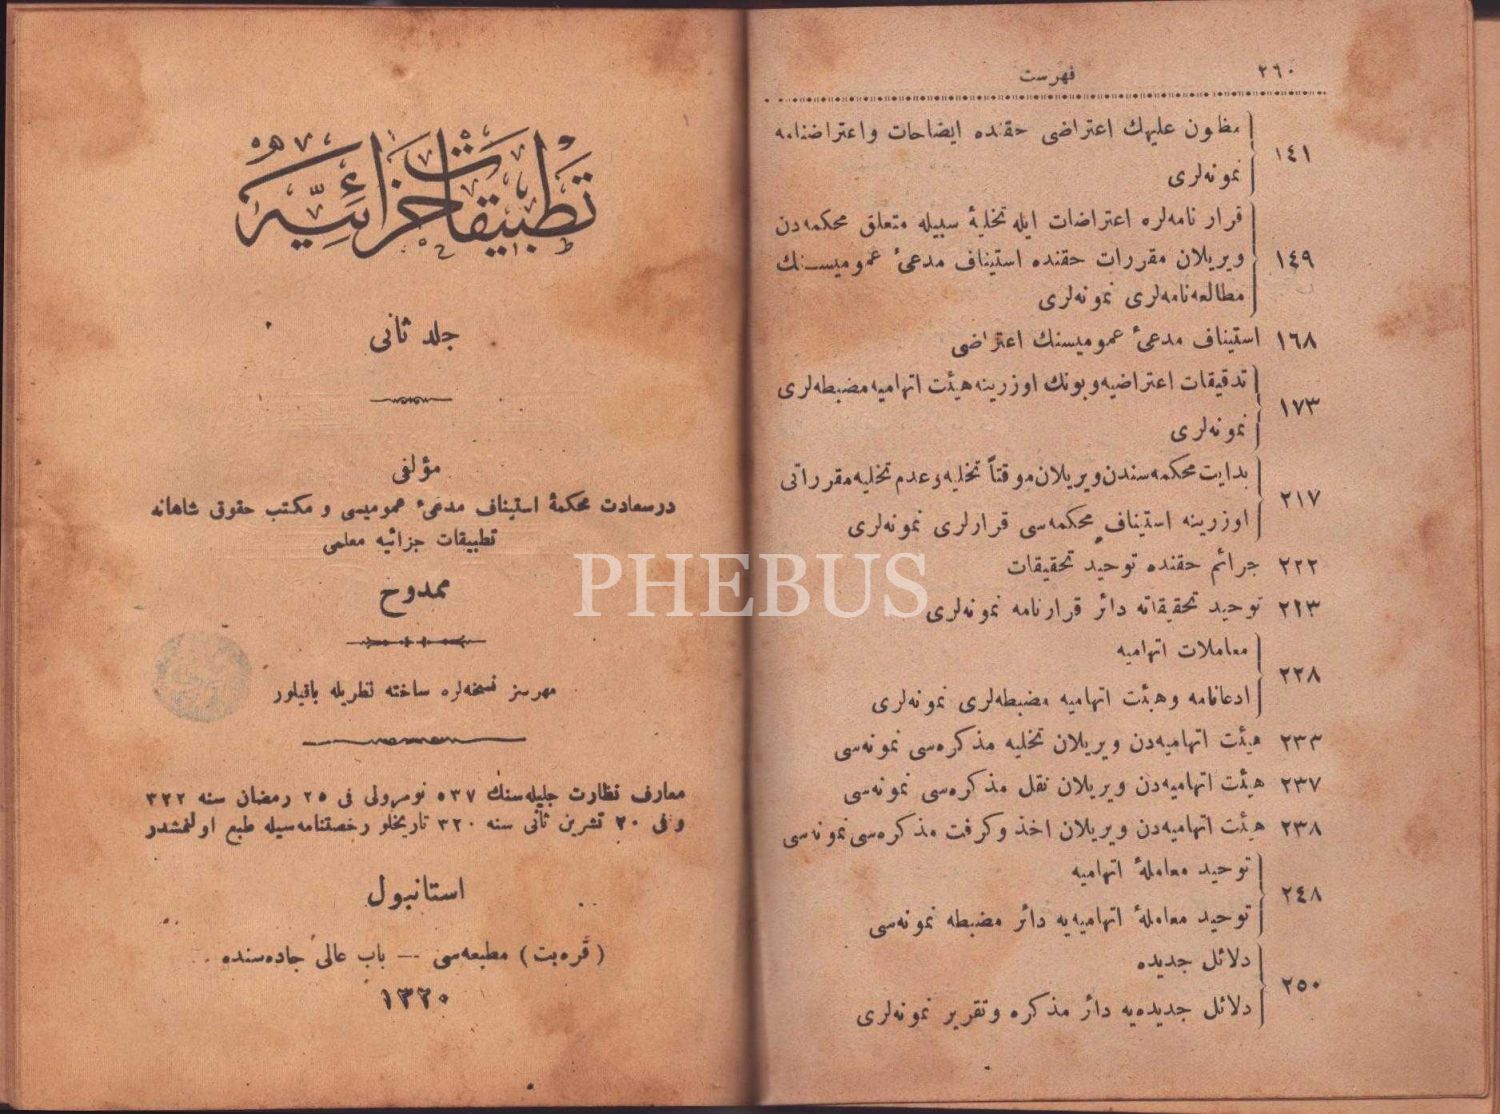 ٢٦٠
فهرست
مظنون عليهك اعتراضى حقنده ايضاحات و اعتراضنامه
١٤١
نمونه‌لرى
قرار نامه‌لره اعتراضات ايله تخليهٔ سبيله متعلق محكمه‌دن
ويريلان مقررات حقنده استيناف مدعئ عموميسنك
١٤٩
مطالعه‌نامه‌لرى نمونه‌لرى
١٦٨ استيناف مدعئ عموميسنك اعتراضى
تدقيقات اعتراضيه و بونك اوزرينه هيئت اتهاميه مضبطه‌لرى
١٧٣
نمونه‌لرى
بدايت محكمه‌سندن ويريلان موقتاً تخليه و عدم تخليه مقرراتى
٢١٧
اوزرينه استيناف محكمه‌سى قرارلرى نمونه‌لرى
٢٢٢ جرائم حقنده توحيد تحقيقات
٢٢٣ توحيد تحقيقاته دائر قرارنامه نمونه‌لرى
معاملات اتهاميه
٢٢٨
ادعانامه و هيئت اتهاميه مضبطه‌لرى نمونه‌لرى
٢٣٣ هيئت اتهاميه‌دن ويريلان تخليه مذكره‌سى نمونه‌سى
٢٣٧ هيئت اتهاميه‌دن ويريلان نقل مذكره‌سى نمونه‌سى
٢٣٨ هيئت اتهاميه‌دن ويريلان اخذ و كرفت مذكره‌سى نمونه‌سى
توحيد معاملهٔ اتهاميه
٢٤٨
توحيد معاملهٔ اتهاميه‌يه دائر مضبطه نمونه‌سى
دلائل جديده
٢٥٠
دلائل جديده‌يه دائر مذكره و تقرير نمونه‌لرى
تطبيقات جزائيه
جلد ثانى
مؤلفى
درسعادت محكمهٔ استيناف مدعئ عموميسى و مكتب حقوق شاهانه
تطبيقات جزائيه معلمى
ممدوح
مهرسز نسخه‌لره ساخته نظريله باقيلور
معارف نظارت جليله‌سنك ٥٣٧ نومرولى فى ٢٥ رمضان سنه ٣٢٢
و فى ٢٠ تشرين ثانى سنه ٣٢٠ تاريخلو رخصتنامه‌سيله طبع اولنمشدر
استانبول
(قره‌بت) مطبعه‌سى — باب عالى جاده‌سنده
١٣٢٠
PHEBUS